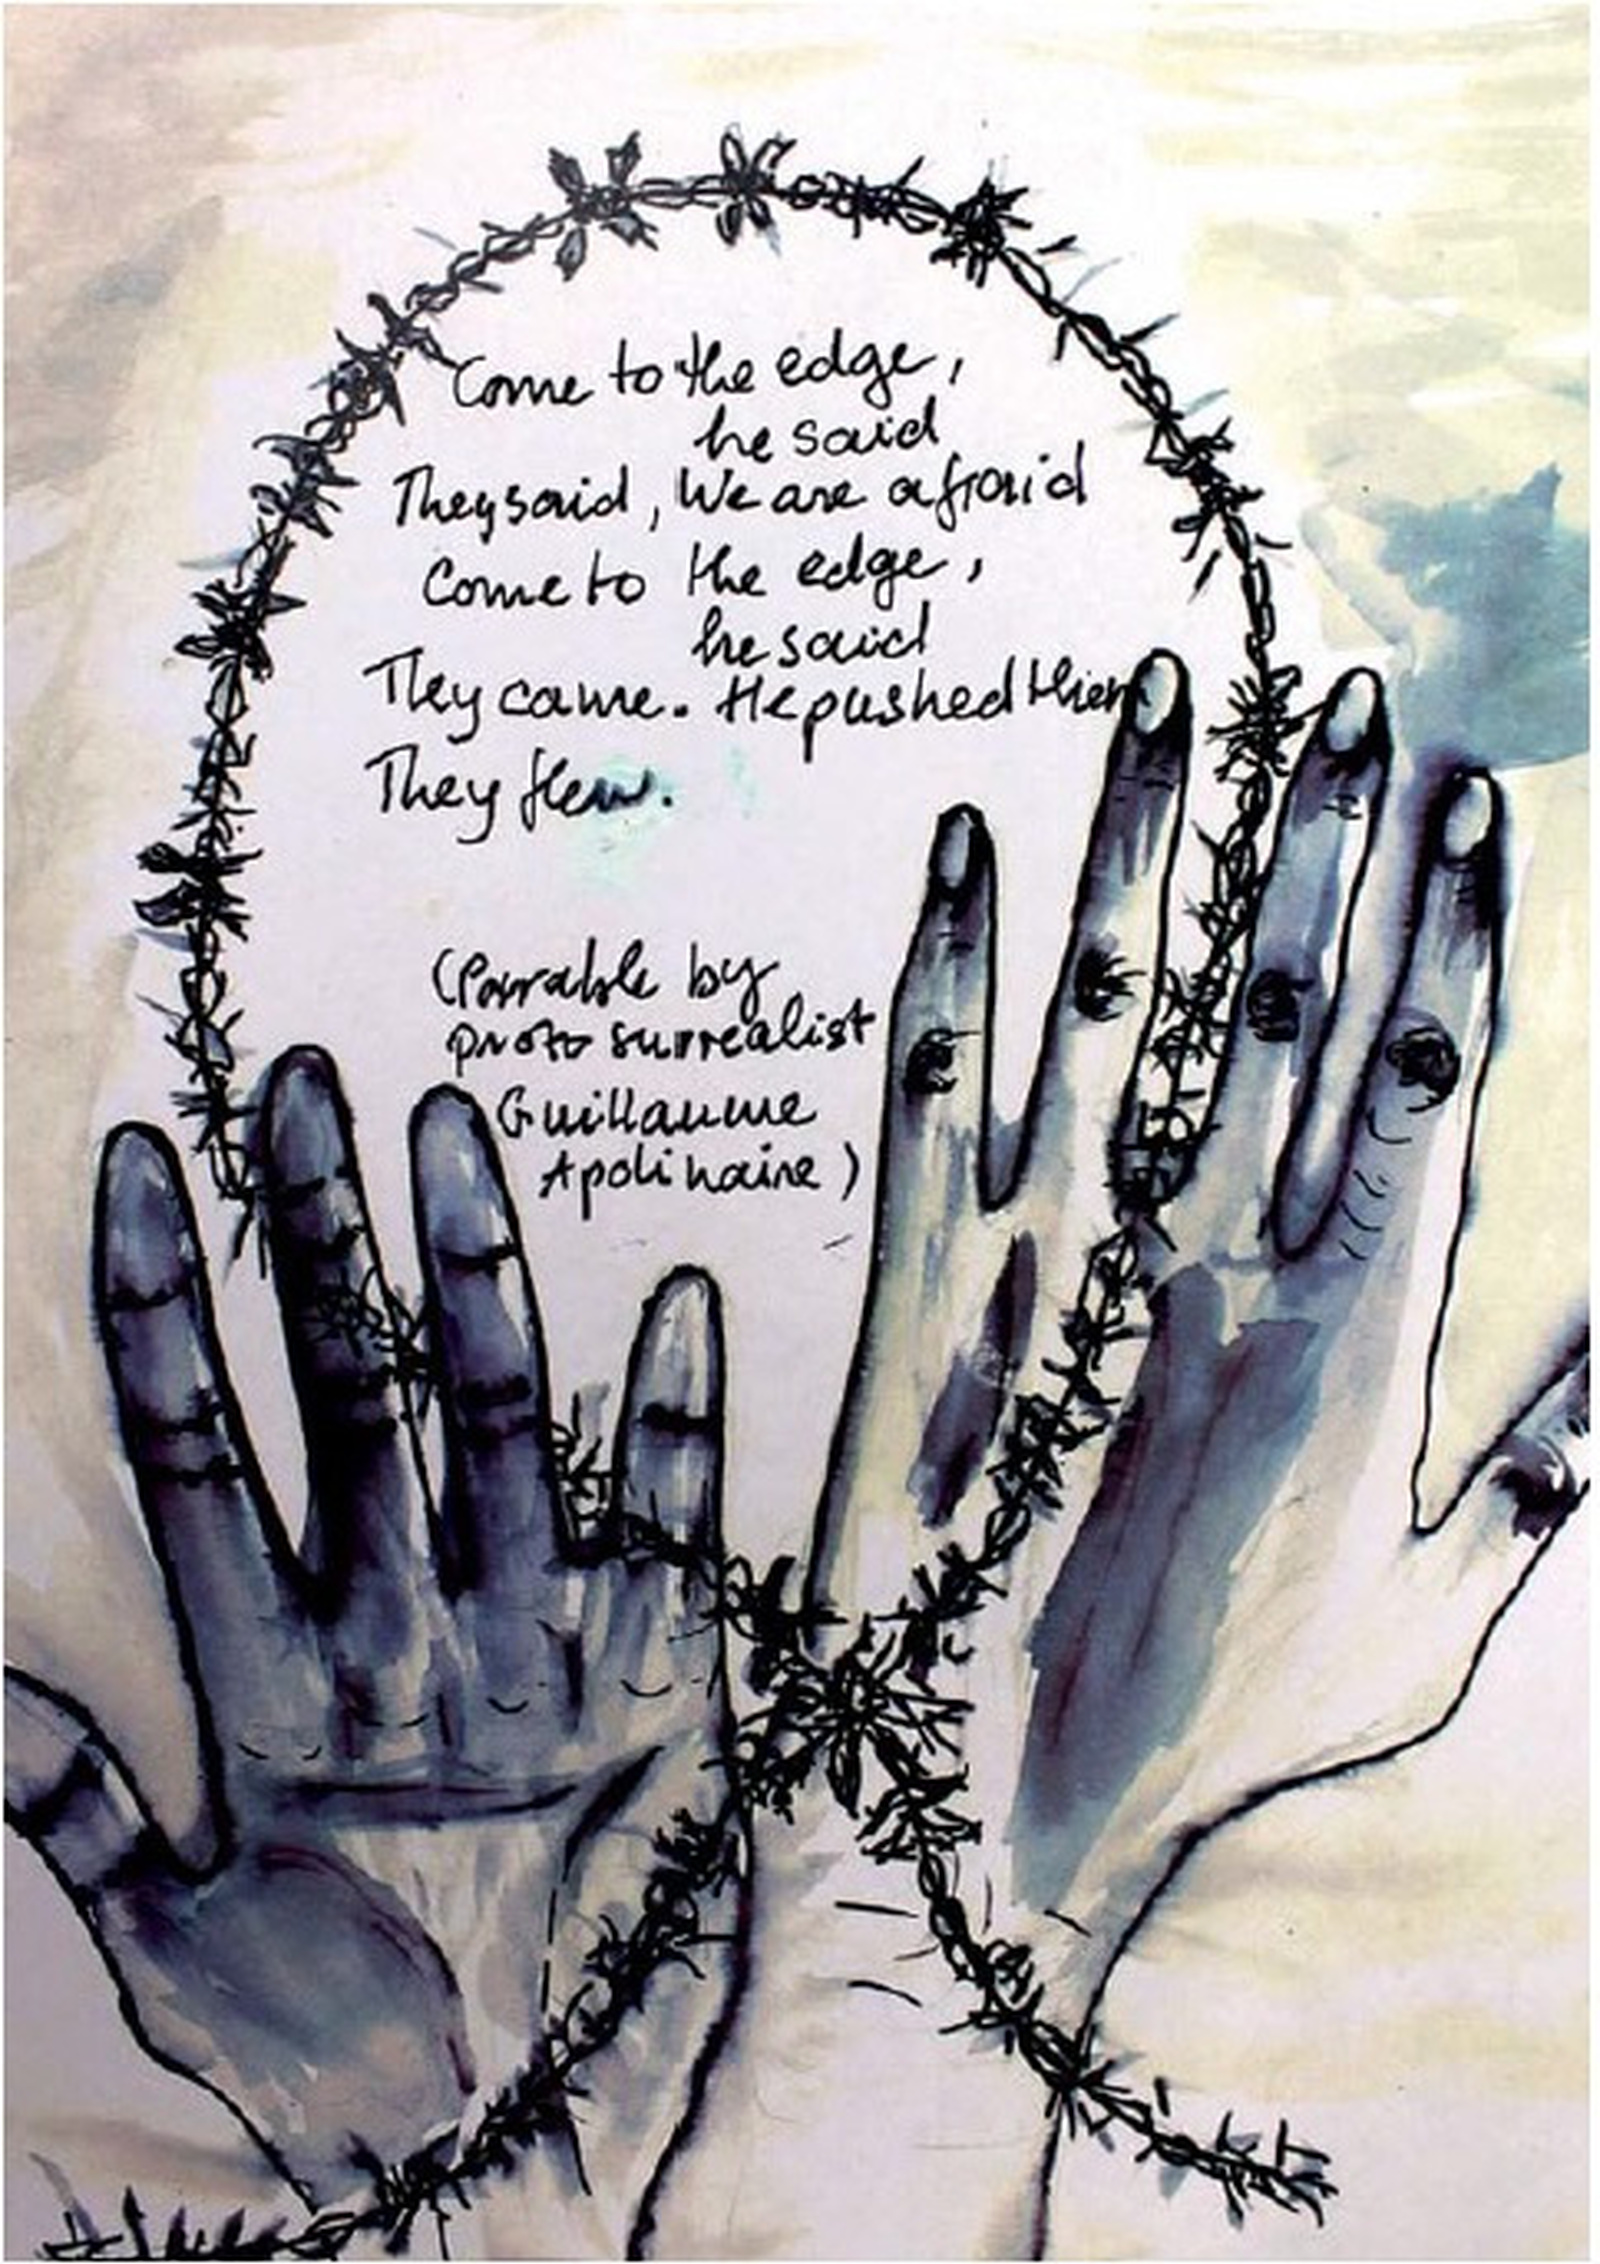 Come to the edge,
he said
They said, We are afraid
Come to the edge,
he said
They came. He pushed them
They flew.
(Parable by
proto surrealist
Guillaume
Apolinaire)